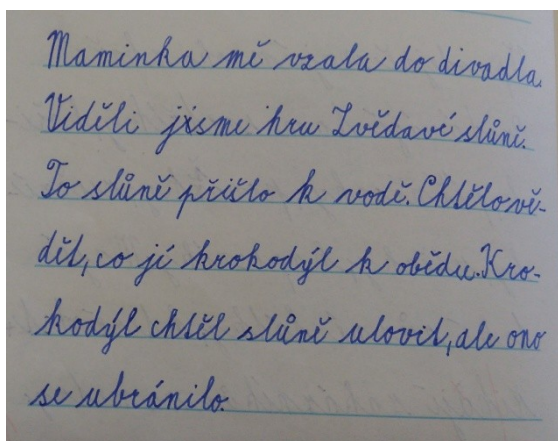 Maminka mě vzala do divadla.
Viděli jsme hru Zvědavé slůně.
To slůně přišlo k vodě. Chtělo vě-
dět, co jí krokodýl k obědu. Kro-
kodýl chtěl slůně ulovit, ale ono
se ubránilo.